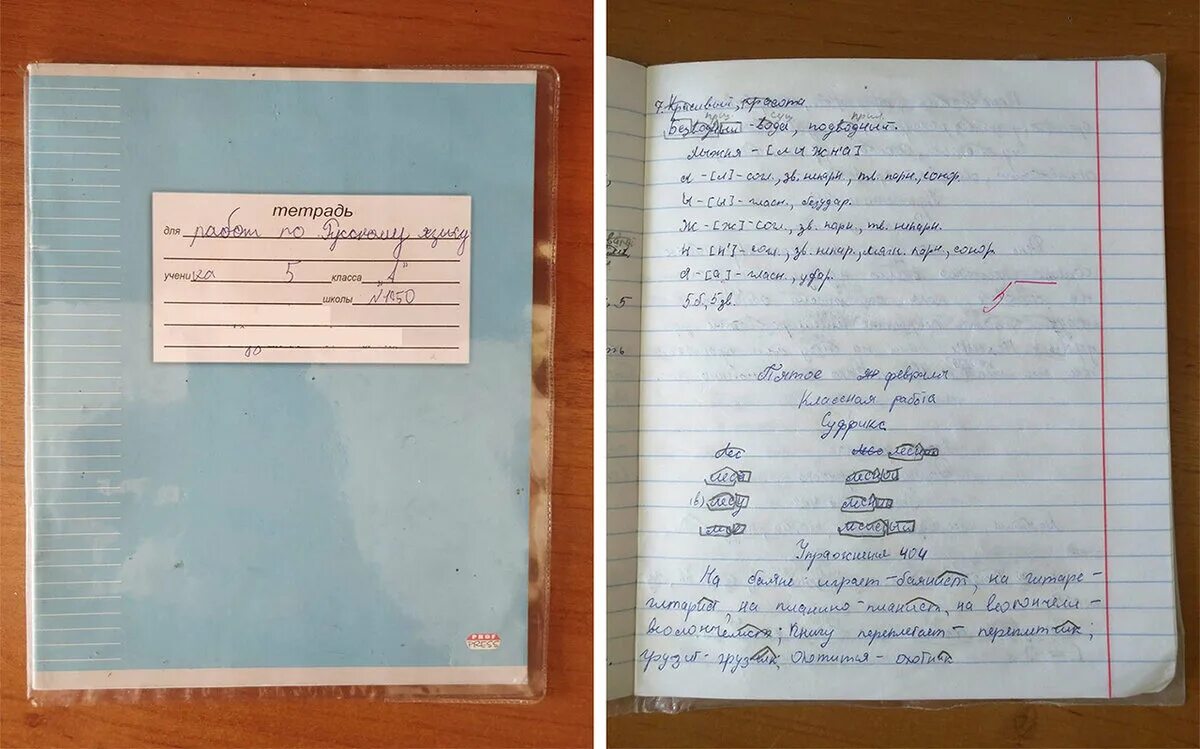 тетрадь
для работ по Русскому языку
ученика 5 класса „А"
школы №1050
PROF
PRESS
7. Красивый, красота
прил сущ прил.
Безводный - вода, подводный.
Лыжня - [лыжн'а]
Л - [л] - согл., зв. непарн., тв. парн., сонор.
Ы - [ы] - гласн., безудар.
Ж - [ж] - согл., зв. парн., тв. непарн.
Н - [н'] - согл., зв. непар., мягк. парн., сонор.
Я - [а] - гласн., удар.
5 б., 5 зв.
5
Пятое февраля
Классная работа
Суффикс
лес
леса лесной
(в) лесу
Упражнения 404
На баяне играет - баянист, на гитаре -
гитарист, на пианино - пианист, на виолончели -
виолончелист; Книгу переплетает - переплетчик;
грузит - грузчик; Охотится - охотник